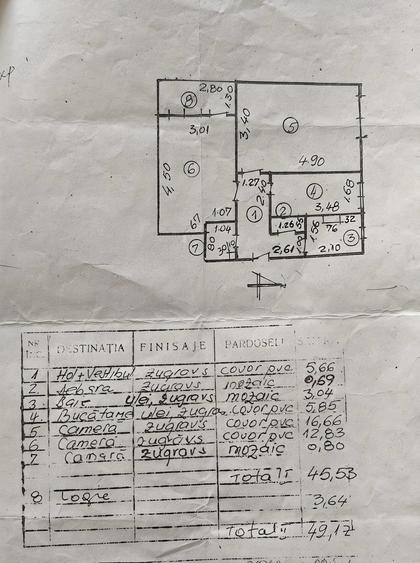 2,80
8
1,30
3,01
3,40
5
6
4,50
4,90
1,27
4
1,68
2,50
3,48
1
2
1.07
67
1.04
1.26
55
1,56
76
32
3
7
80
2,61
2,10
NR
DESTINAȚIA FINISAJE PARDOSELI
1 Hol+Vestibul zugravs covor pvc 5,66
2 Debara zugravs mozaic 0,69
3 Baie ulei, zugravs mozaic 3,04
4 Bucătărie ulei, zugravs covor pvc 5,85
5 Camera zugravs covor pvc 16,66
6 Camera zugravs covor pvc 12,83
7 Camară zugravs mozaic 0,80
Total I 45,53
8 Logie 3,64
Total II 49,17